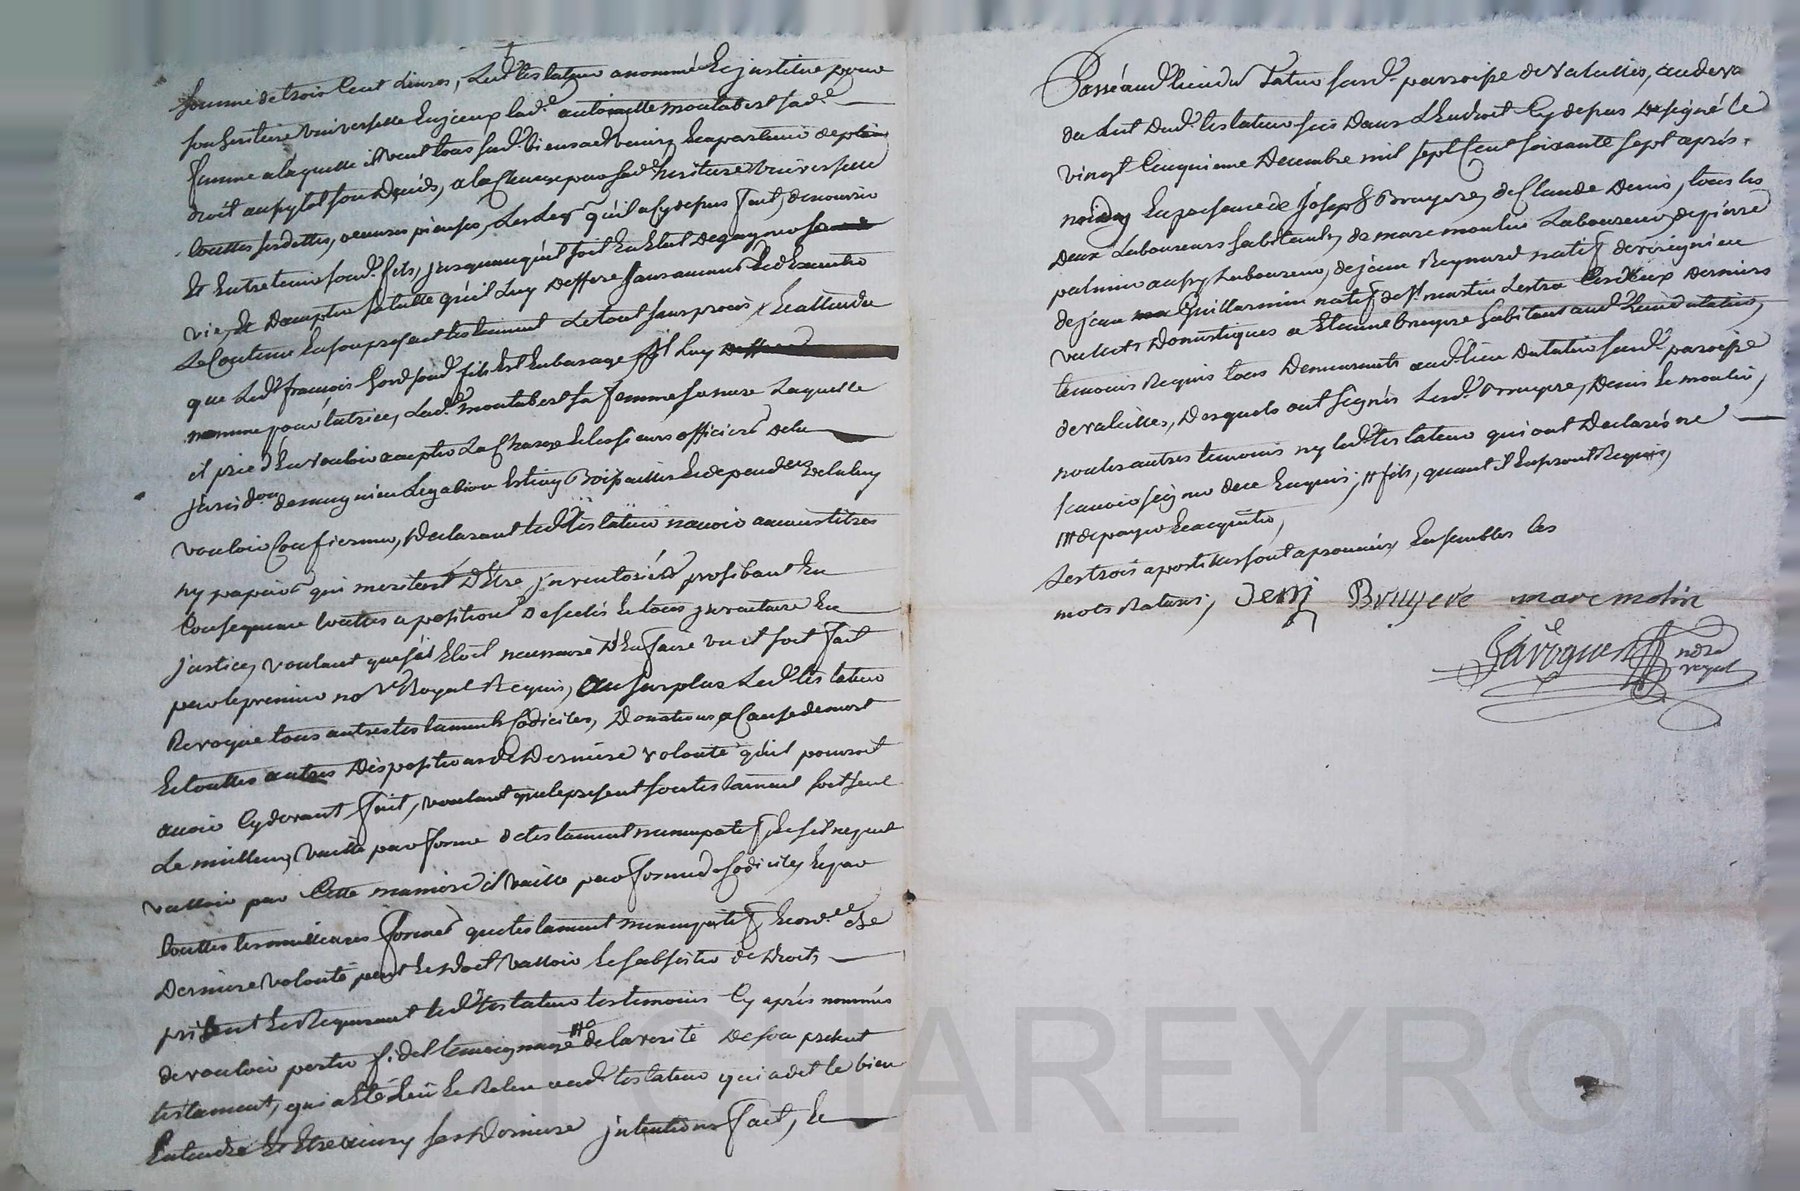 somme de trois Cent Livres, Led.t testateur a nommé & institué pour
son heritiere universelle
femme a laquelle il veut tous sesd. biens advenir & apartenir de plain
droit aussytot son Deceds, a la Charge par sad.e heritiere universelle
touttes ses dettes, oeuvres pieuses, Les Legs qu'il a Cy depus fait, de nourrir
Et Entretenir sond.t fils, jusqua ce qu'il soit En Etat de gagner sa
vie, Et Daccepter la tutelle qu'il Luy Deffere
Le Contenu En son present testament Le tout sans procés & attendu
que Led.t françois sond.t fils Est En bas age, il Luy
nomme pour tutrice, Lad.e montabert sa femme sa mere Laquelle
il prie d'En vouloir accepter La Charge & Messieurs officiers De la
jurisd.on & dependces de la luy
vouloir Confirmer, Declarant led.t testateur n'avoir aucuns titres
ny papiers qui meritent D'Etre jnventoriés prohibant En
Consequence touttes aposition De scelés & tous jnventaire En
justice, voulant que s'il Etoit necessaire D'En faire un il soit fait
par le premier no.re Royal Requis, Au surplus Led.t testateur
Revoque tous autres testaments Codiciles, Donations a Cause de mort
& touttes autres Dispositions De Derniere volonté qu'il pourroit
avoir Cy devant fait, voulant que le present son testament soit seul
Le meilleur, vaille par forme de testament nuncupatif & s'il ne peut
valloir par Cette maniere il vaille par forme de Codicile, & par
touttes les meilleures formes que testament nuncupatif & ord.ce de
Derniere volonté peut & Doit valloir & subsister de Droit,
priant & Requerant led.t testateur les temoins Cy aprés nommés
de vouloir porter fidel temoignage de la verité De son present
testament, qui a Eté Leu & Releu aud.t testateur qui a dit le bien
Entendre Et Etre ainsy ses Derniere jntentions fait, &
Passé aud.t lieu du Tatre susd.t paroisse de valeilles, au devan
du Lit Dud.t testateur scis Dans L'Endroit Cy depus Designé le
vingt Cinquieme Decembre mil sept Cent soixante sept aprés
midy En presence de Joseph Bruyere, de Claude Denis, tous les
Deux Laboureurs habitants, de marc moulin Laboureur, de pierre
palmier aussy Laboureur, de jean Reynard natif
de jean Guillarmin natif de St martin Lestra Ces deux Derniers
valets Domestiques & Etienne bruyere habitant aud.t lieu
temoins Requis tous Demeurants aud.t lieu du tatre susd.t paroisse
de valeilles, Desquels ont signés Lesd.ts Bruyere, Denis & moulin,
non les autres temoins ny led.t testateur qui ont Declarés ne
scavoir signer de ce Enquis, # fils, quant il En seront Requis,
## de payer & acquitter,
Les trois apostilles sont aprouvées Ensembles les
mots Raturés, Denis Bruyere marc molin
Javogues nore
royal